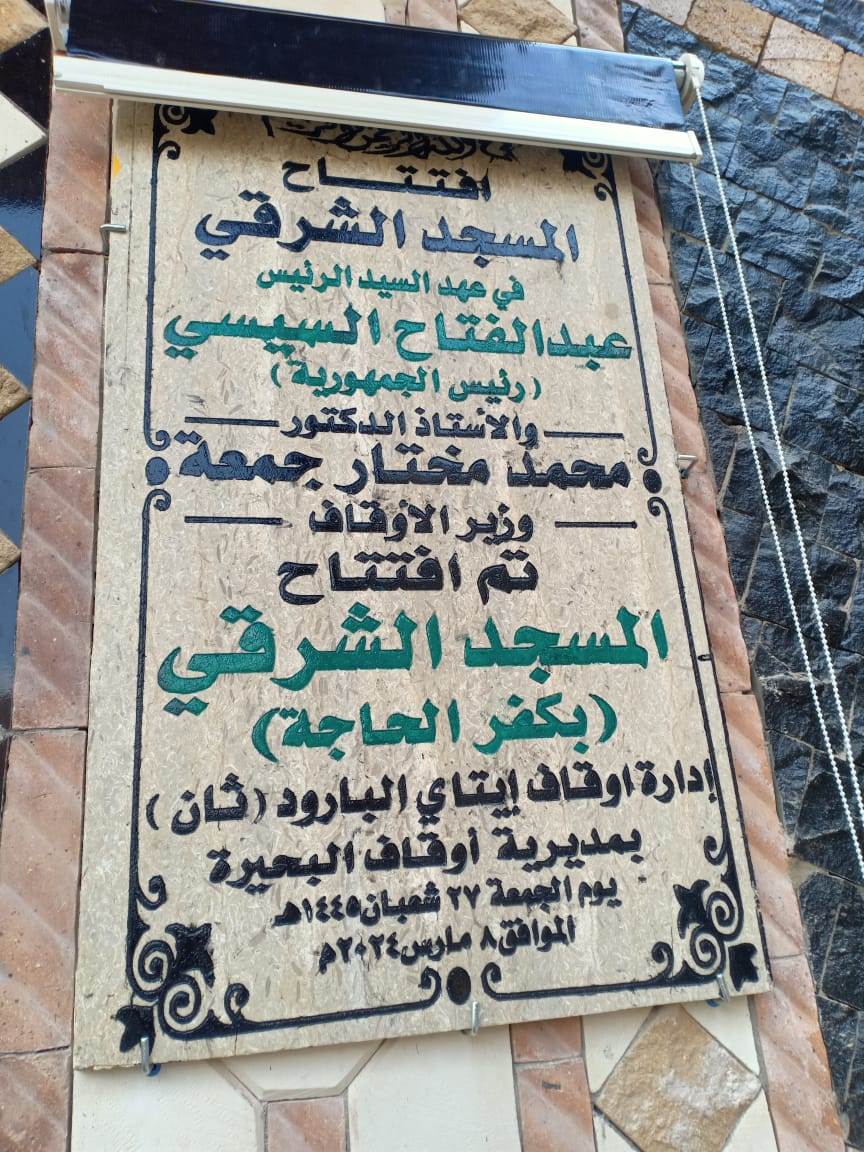 افتتاح
المسجد الشرقي
في عهد السيد الرئيس
عبدالفتاح السيسي
(رئيس الجمهورية)
والأستاذ الدكتور
محمد مختار جمعة
وزير الأوقاف
تم افتتاح
المسجد الشرقي
(بكفر الحاجة)
إدارة اوقاف إيتاي البارود (ثان)
بمديرية أوقاف البحيرة
يوم الجمعة ٢٧ شعبان ١٤٤٥هـ
الموافق ٨ مارس ٢٠٢٤م